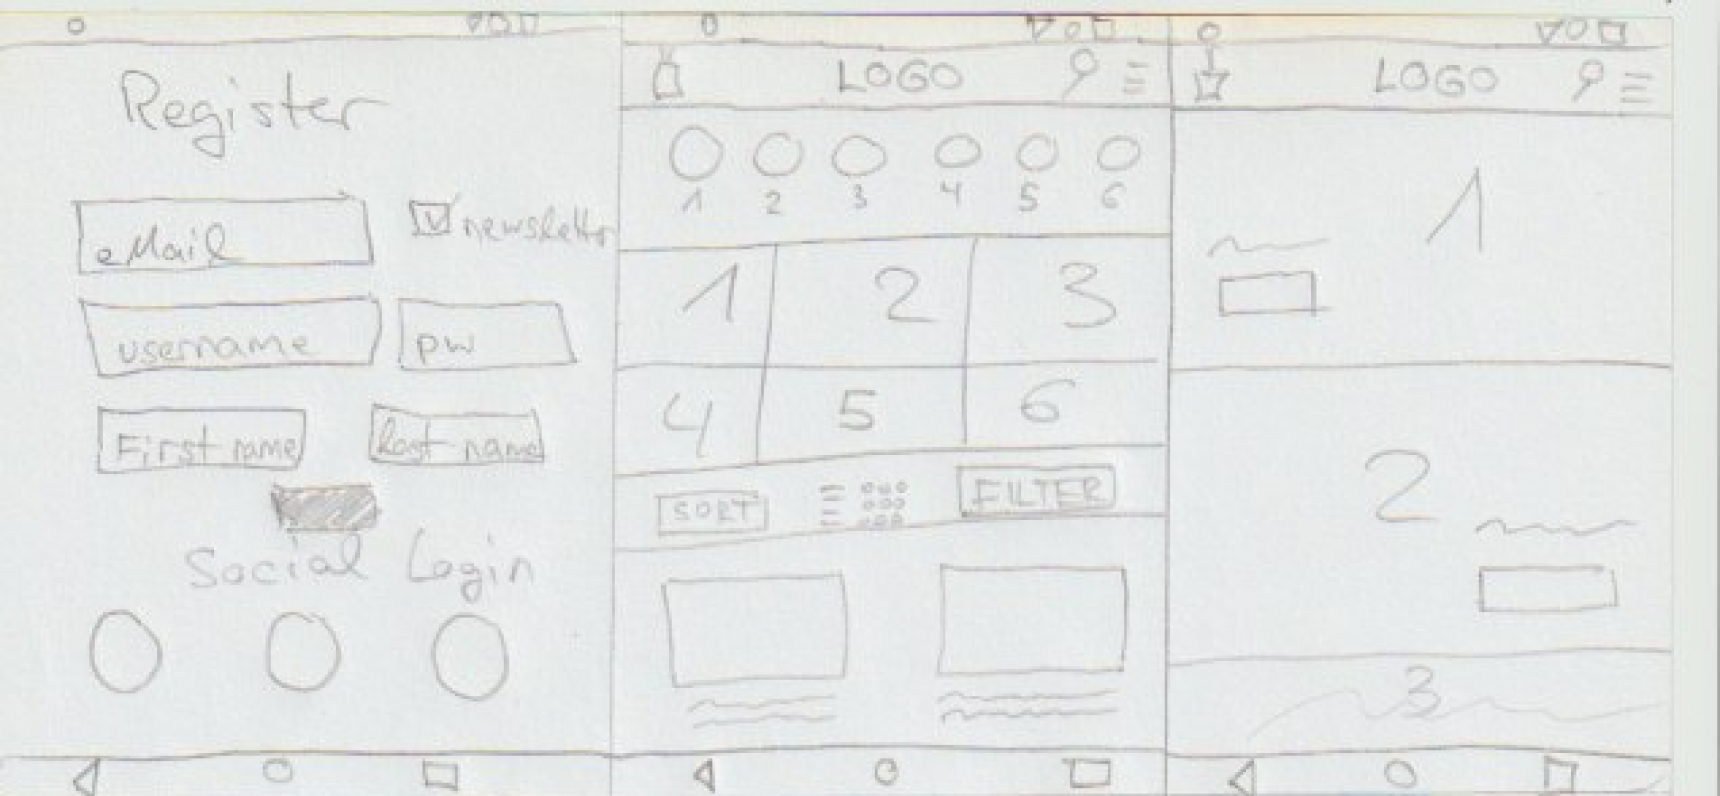 Register
eMail
newsletter
username
pw
First name
Last name
Social Login
LOGO
1 2 3 4 5 6
1 2 3
4 5 6
SORT
FILTER
LOGO
1
2
3